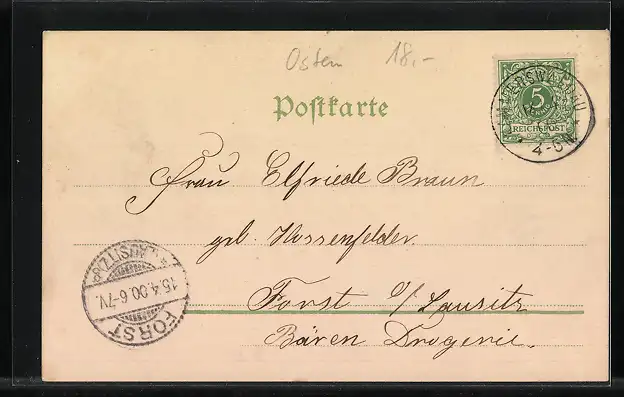 Osten 18,-
Postkarte
5
REICHSPOST
4-5N
Frau Elfriede Braun
geb. Hossenfelder
Forst i/Lausitz
Bären Drogerie.
(LAUSITZ)
15.4.00.6-7V.
FORST